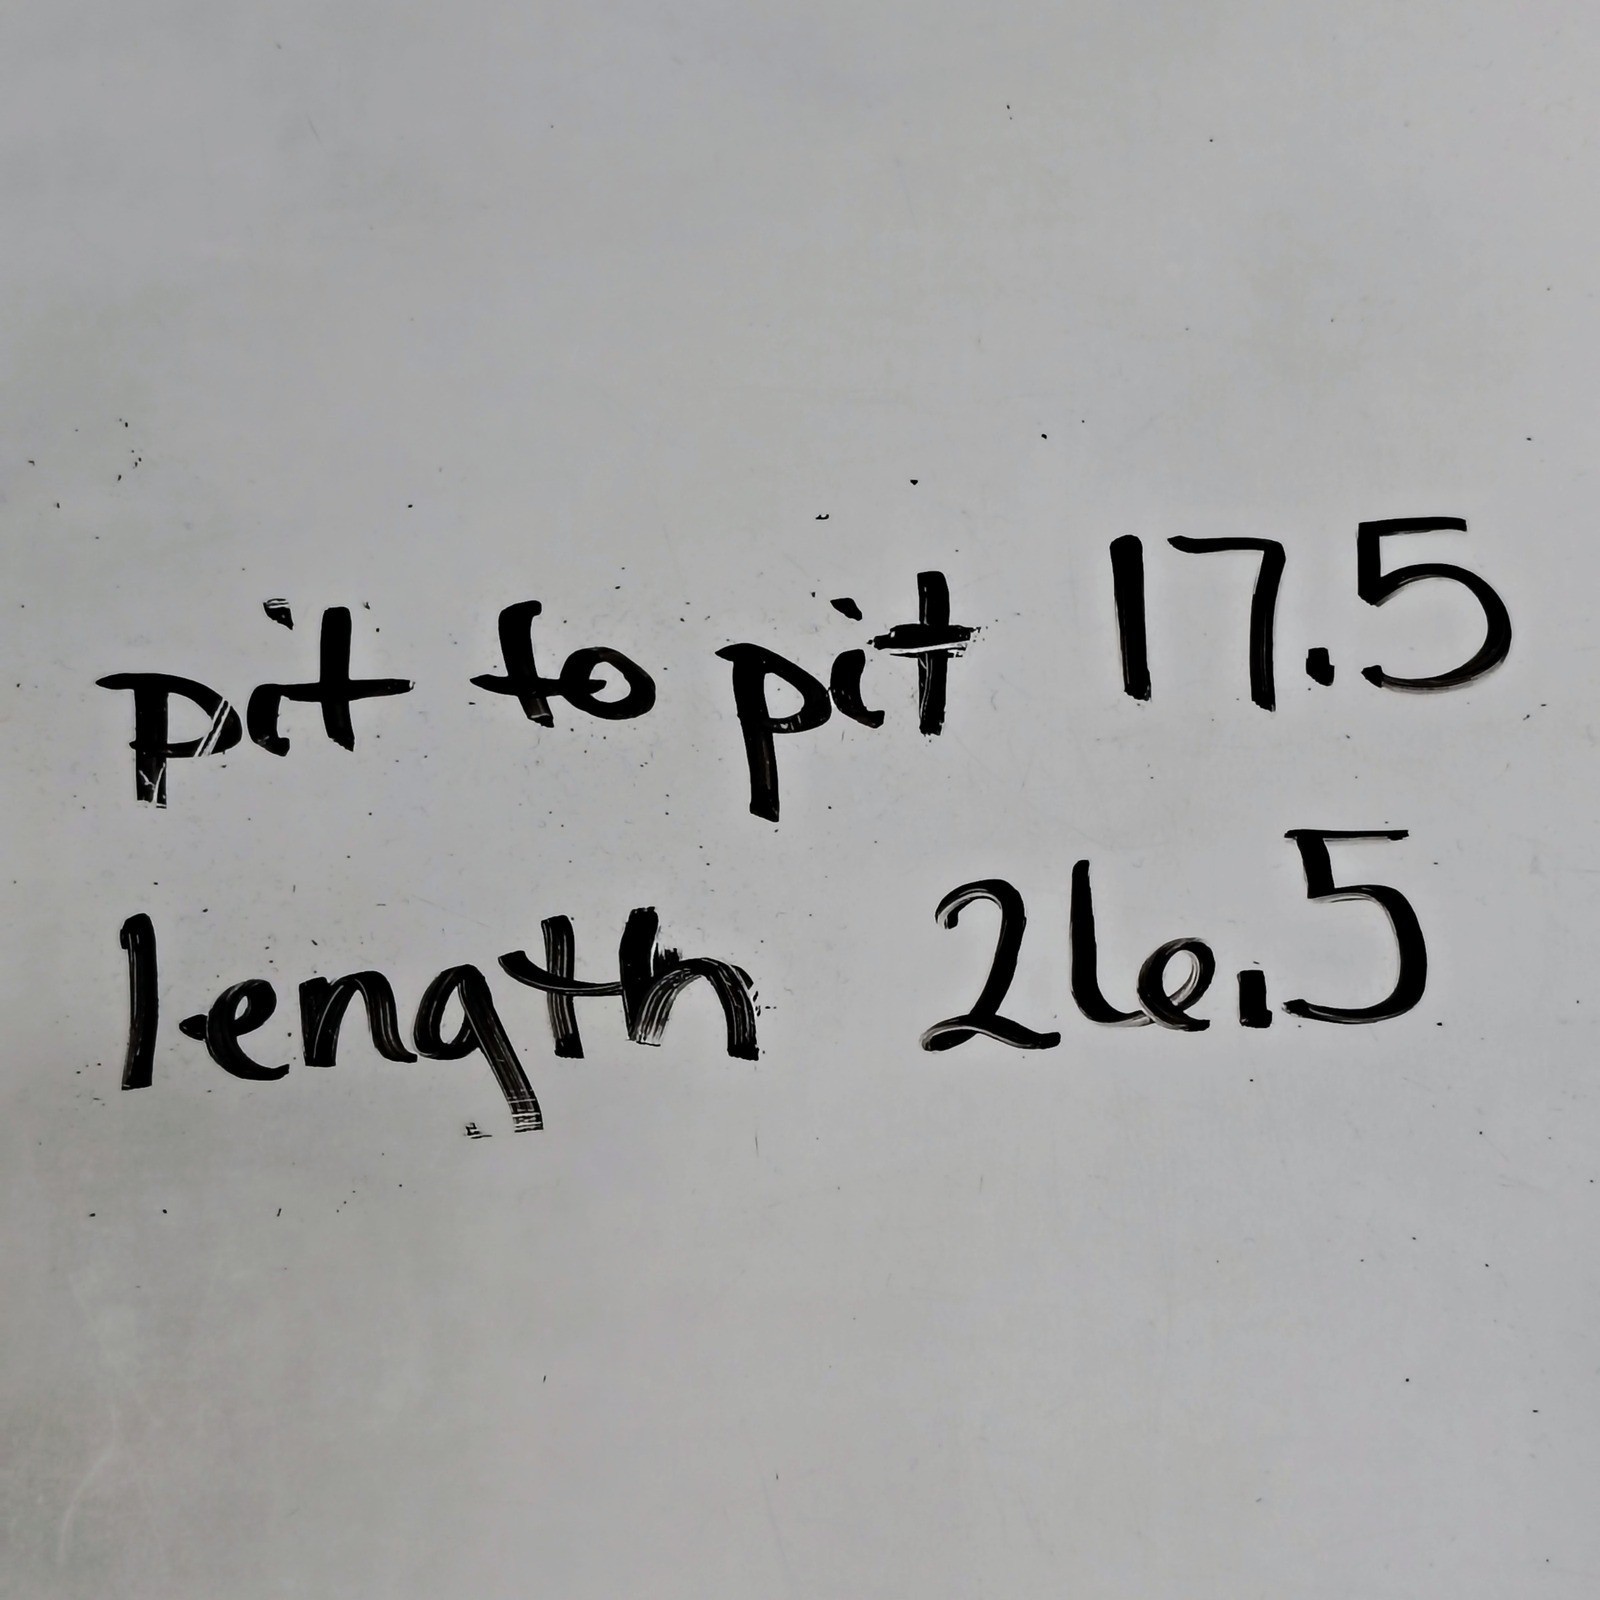 pit to pit 17.5
length 26.5